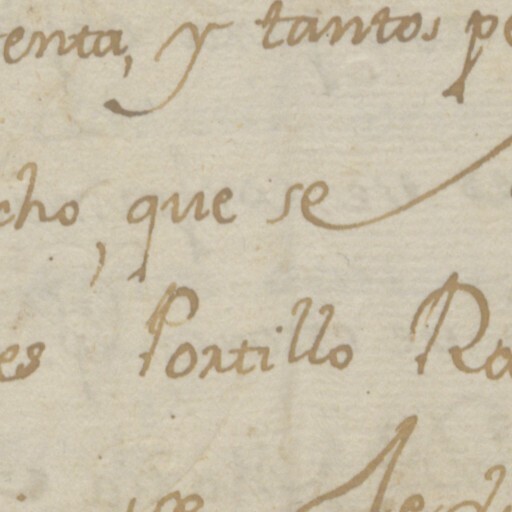 tenta, y tantos pe
cho, que se
es Portillo Ro